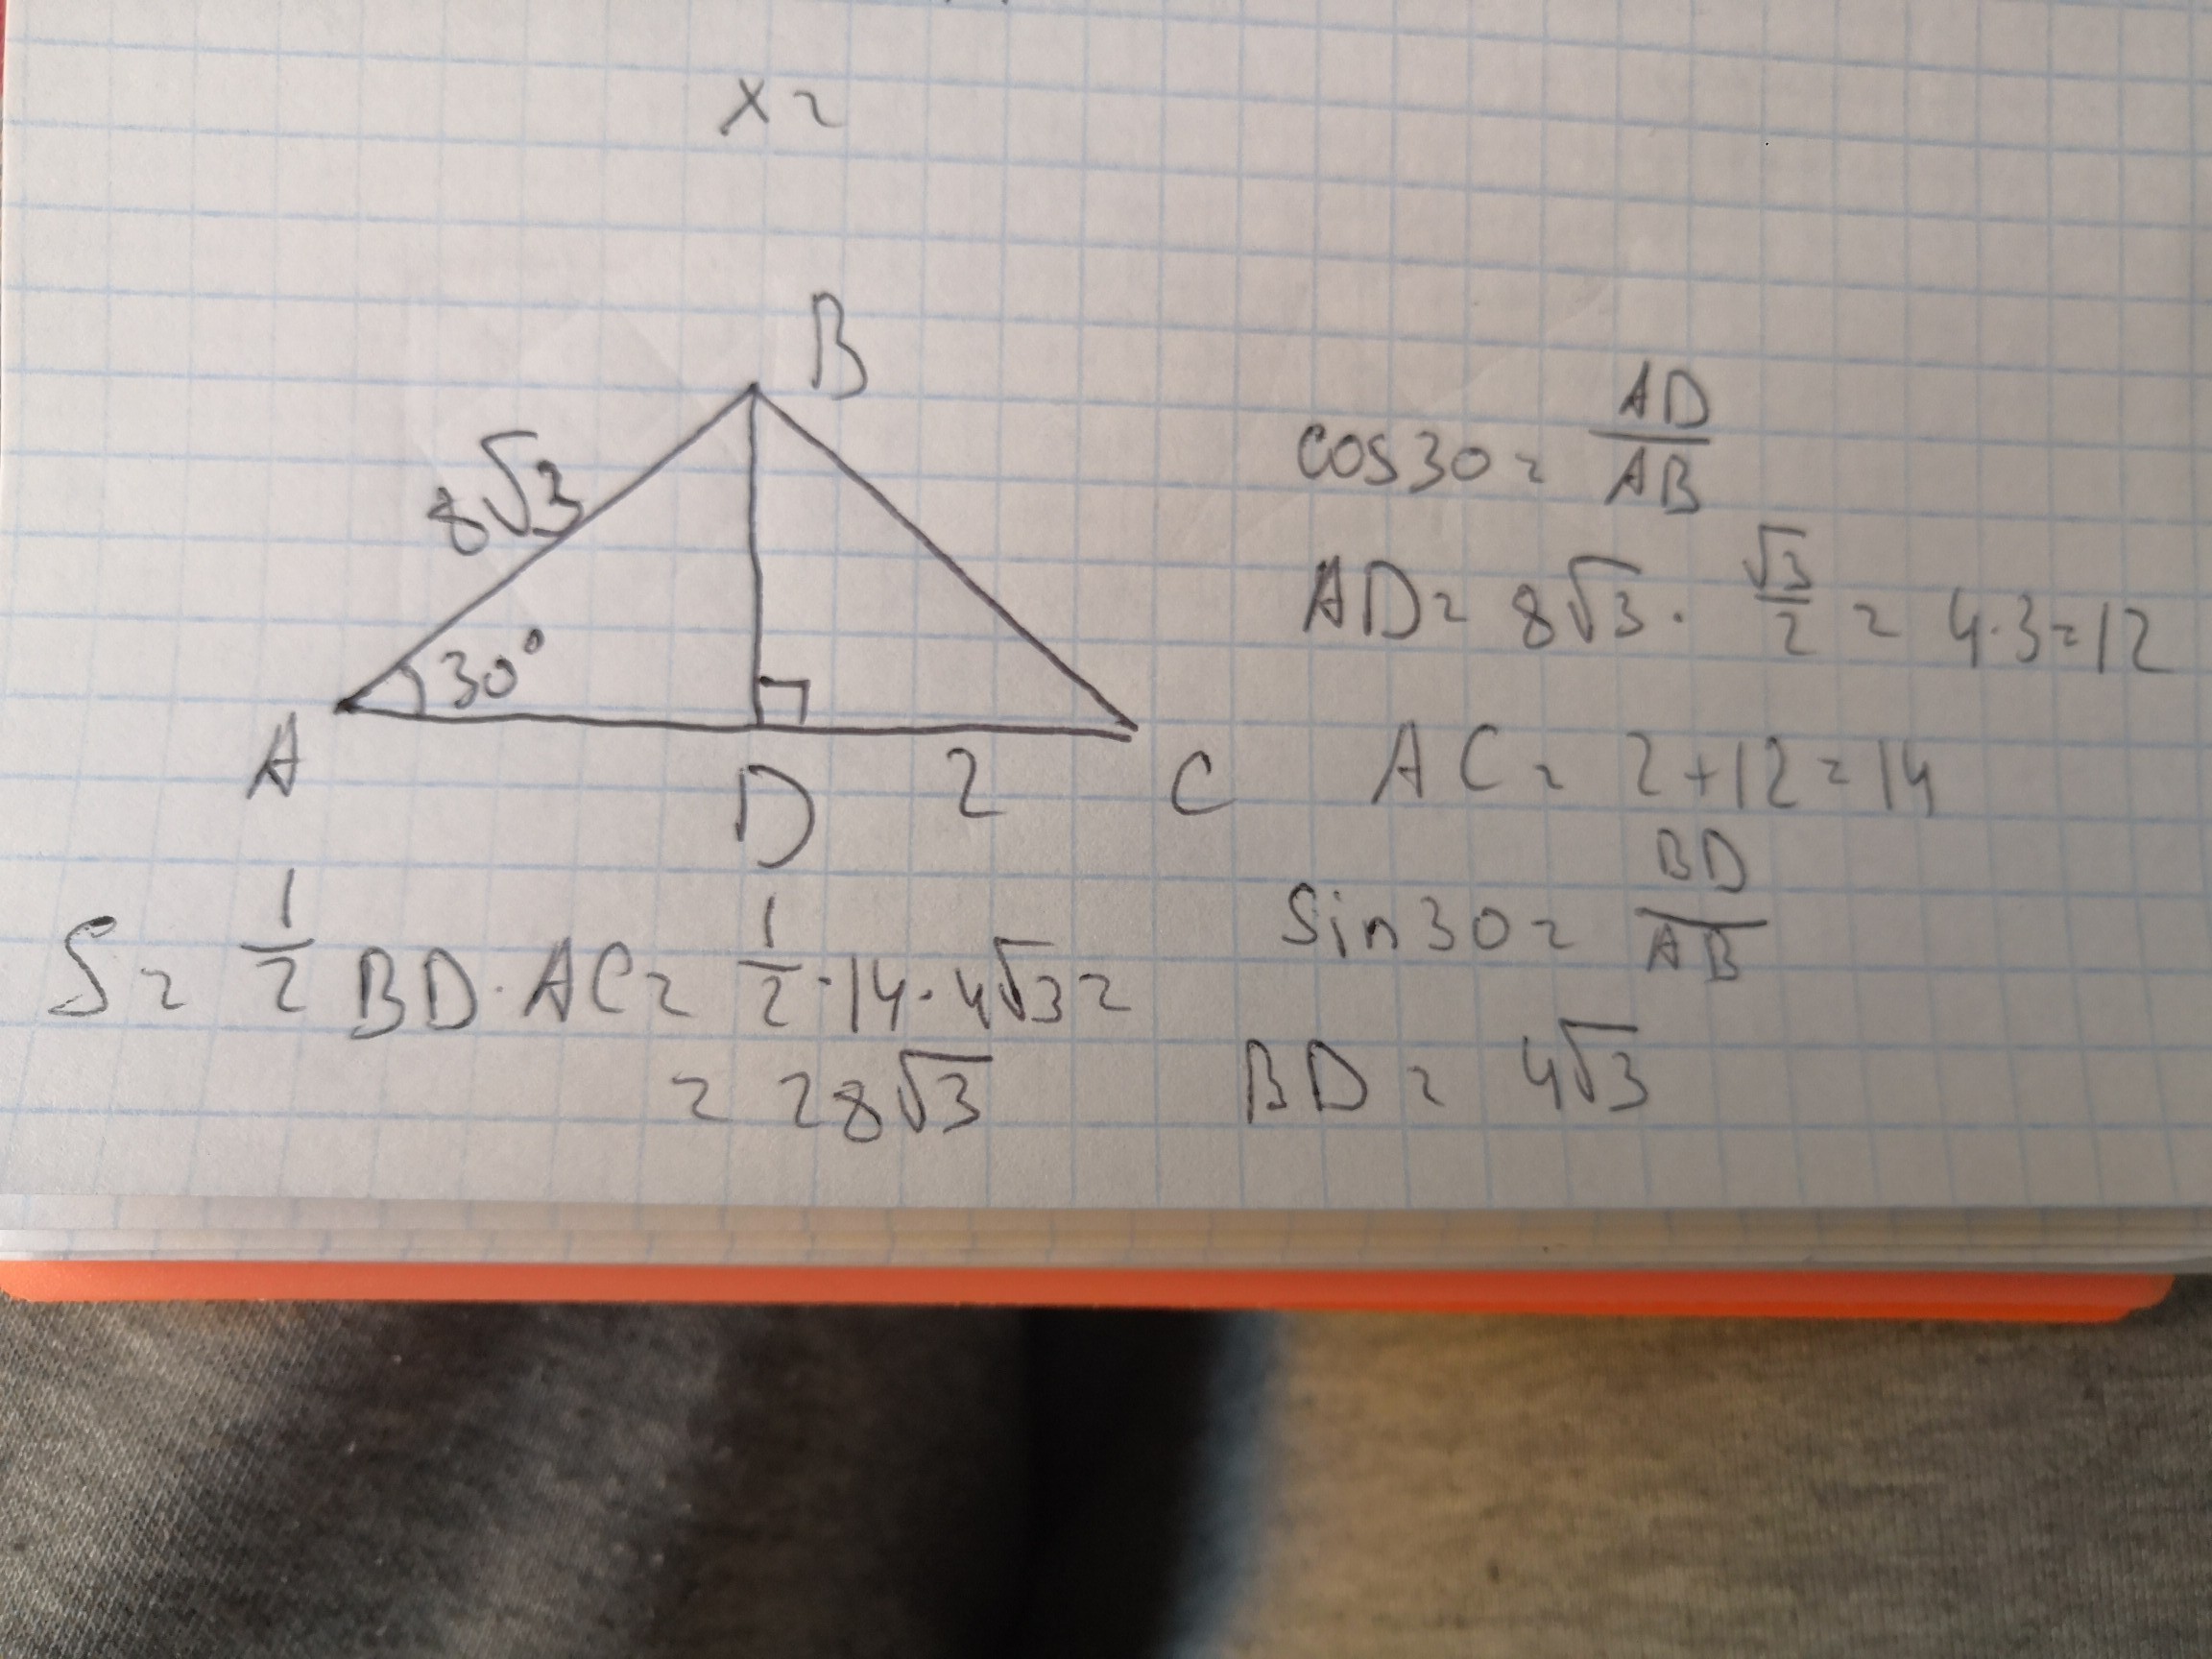 x =
B
8√3
30°
A
D
2
C
cos30 = AD/AB
AD = 8√3 · √3/2 = 4·3=12
AC = 2+12=14
Sin30 = BD/AB
BD = 4√3
S = 1/2 BD·AC = 1/2·14·4√3 =
= 28√3